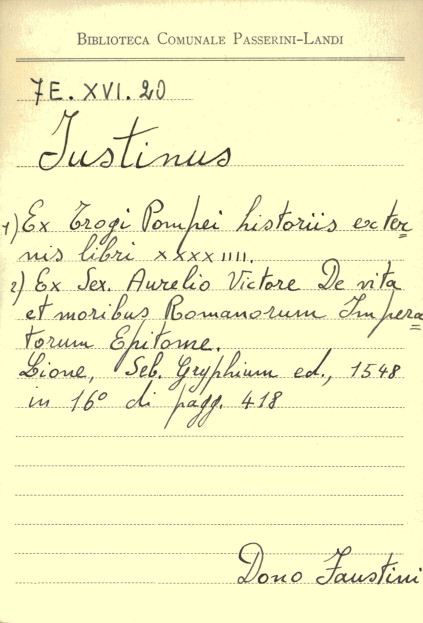 BIBLIOTECA COMUNALE PASSERINI-LANDI
7E. XVI. 20
Iustinus
1) Ex Trogi Pompei historiis exter=
nis libri xxxxıııı.
2) Ex Sex. Aurelio Victore De vita
et moribus Romanorum Impera=
torum Epitome.
Lione, Seb. Gryphium ed., 1548
in 16º di pagg. 418
Dono Faustini